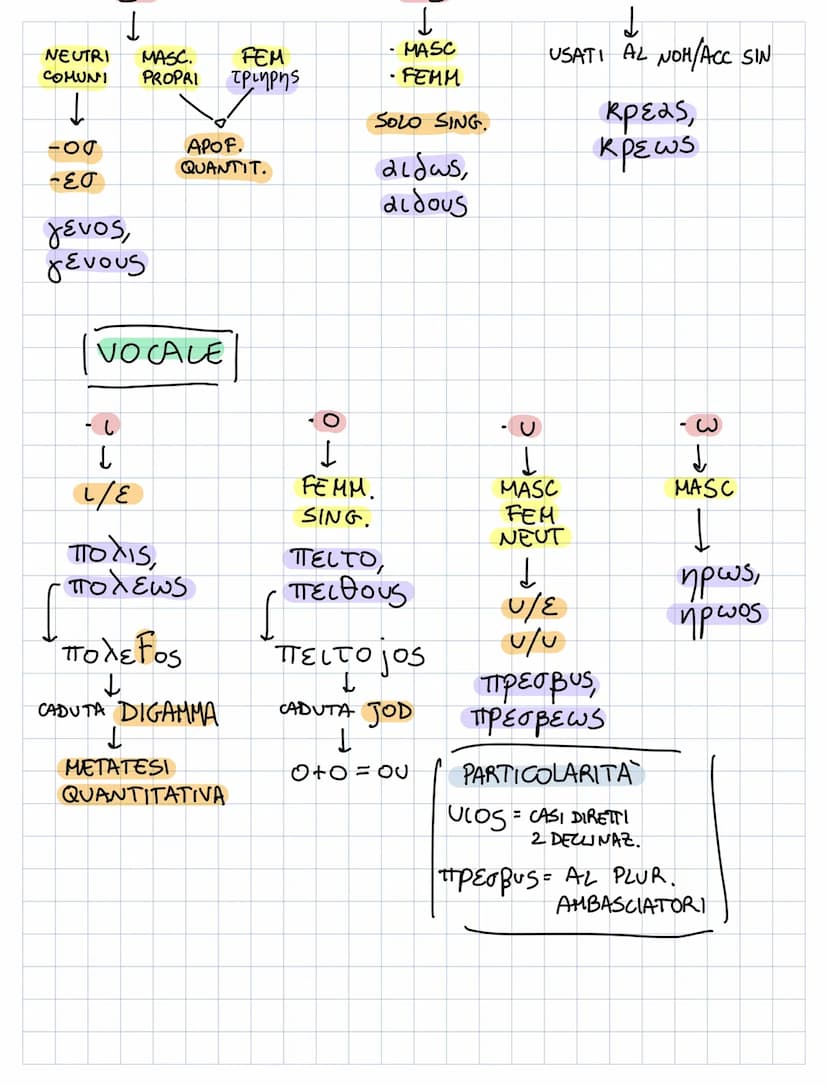 NEUTRI
COMUNI
-οσ
-εσ
γενος,
γενους
MASC.
PROPRI
FEM
τριηρης
APOF.
QUANTIT.
· MASC
· FEMM
SOLO SING.
αιδως,
αιδους
USATI AL NOM/ACC SIN
κρεας,
κρεως
VOCALE
-ι
ι/ε
πολις,
πολεως
πολεFος
CADUTA DIGAMMA
METATESI
QUANTITATIVA
·ο
FEMM.
SING.
πειτο,
πειθους
πειτοjος
CADUTA JOD
ο+ο = ου
·υ
MASC
FEM
NEUT
υ/ε
υ/υ
πρεσβυς,
πρεσβεως
-ω
MASC
ηρως,
ηρωος
PARTICOLARITÀ
υιος = CASI DIRETTI
2 DECLINAZ.
πρεσβυς = AL PLUR.
AMBASCIATORI